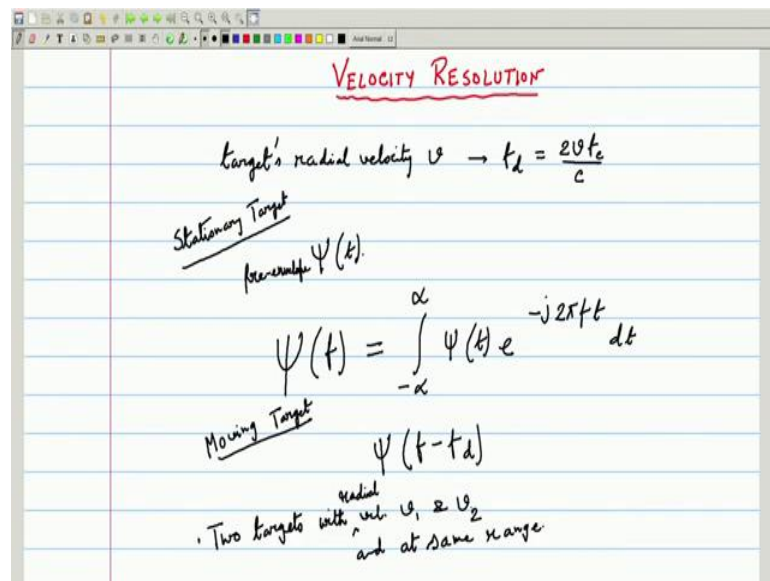 VELOCITY RESOLUTION
target's radial velocity v → f_d = 2vf_c / c
Stationary Target
pre-envelope Ψ(t).
Ψ(f) = ∫_{-α}^{α} Ψ(t) e^{-j2πft} dt
Moving Target
Ψ(f-f_d)
. Two targets with radial vel. v_1 & v_2
and at same range.